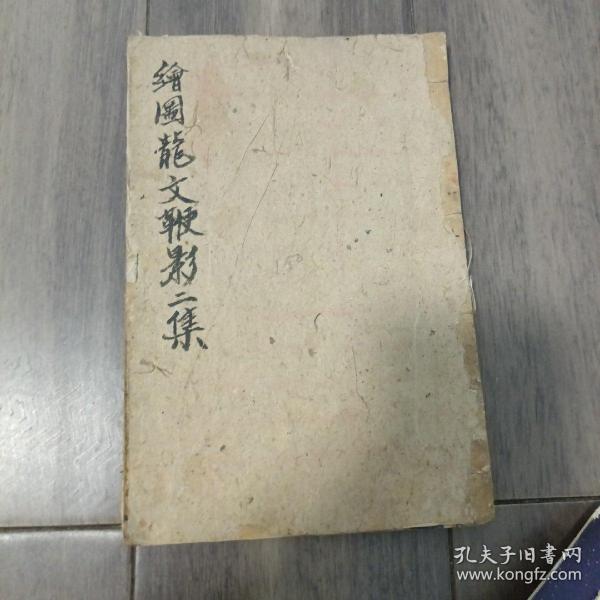 繪圖龍文鞭影二集
150
孔夫子旧書网
www.kongfz.com